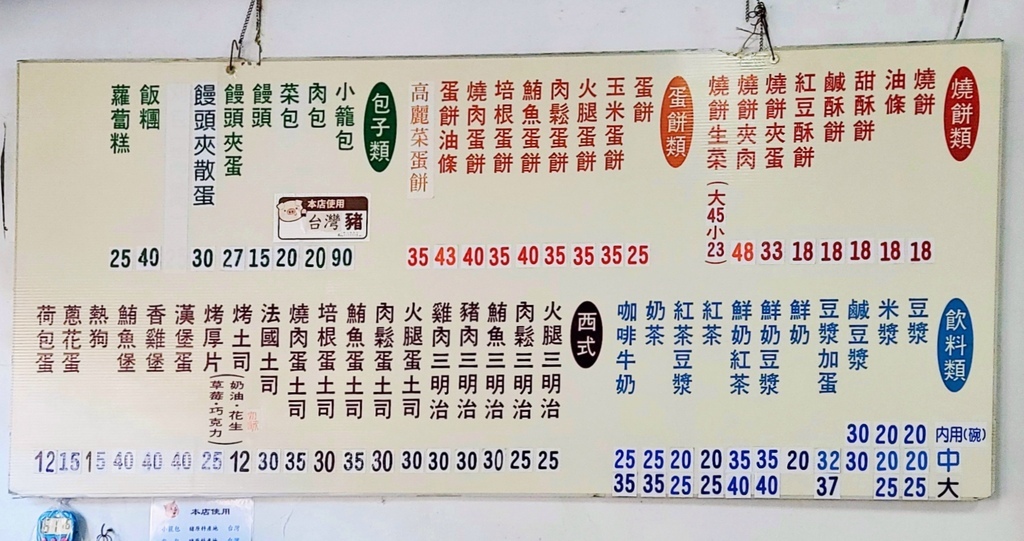 燒餅類
燒餅 18
油條 18
甜酥餅 18
鹹酥餅 18
紅豆酥餅 18
燒餅夾蛋 33
燒餅夾肉 48
燒餅生菜(大45小23)
蛋餅類
蛋餅 25
玉米蛋餅 35
火腿蛋餅 35
肉鬆蛋餅 35
鮪魚蛋餅 40
培根蛋餅 35
燒肉蛋餅 40
蛋餅油條 43
高麗菜蛋餅 35
包子類
小籠包 90
肉包 20
菜包 20
饅頭 15
饅頭夾蛋 27
饅頭夾散蛋 30
飯糰 40
蘿蔔糕 25
本店使用
台灣豬
飲料類
內用(碗) 中 大
豆漿 20 20 25
米漿 20 20 25
鹹豆漿 30 30
豆漿加蛋 32 37
鮮奶 20
鮮奶豆漿 35 40
鮮奶紅茶 35 40
紅茶 20 25
紅茶豆漿 20 25
奶茶 25 35
咖啡牛奶 25 35
西式
火腿三明治 25
肉鬆三明治 25
鮪魚三明治 30
豬肉三明治 30
雞肉三明治 30
火腿蛋土司 30
肉鬆蛋土司 30
鮪魚蛋土司 35
培根蛋土司 30
燒肉蛋土司 35
法國土司 30
烤土司 12
烤厚片 25
(奶油·花生
草莓·巧克力)
漢堡蛋 40
香雞堡 40
鮪魚堡 40
熱狗 15
蔥花蛋 15
荷包蛋 12
本店使用